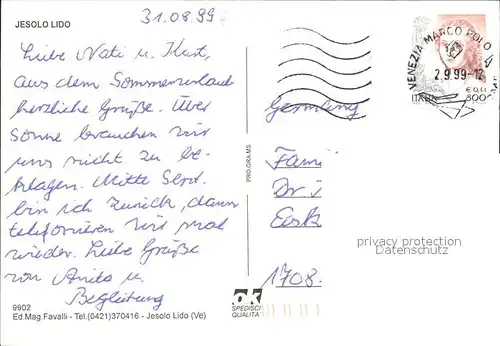 JESOLO LIDO
31.08.99
Liebe Nati u. Kurt,
aus dem Sommerurlaub
herzliche Grüße. Über
Sonne brauchen wir
uns nicht zu be-
klagen. Mitte Sept.
bin ich zurück, dann
telefonieren wir mal
wieder. Liebe Grüße
von Anita u.
Begleitung
9902
Ed.Mag.Favalli - Tel.(0421)370416 - Jesolo Lido (Ve)
PROGRA.MS
ok
SPEDISCI
QUALITÀ
VENEZIA MARCO POLO
2.9.99-12
ITALIA
€ 0,41
800
Germany
Fami
Dr. i
1708.
privacy protection
Datenschutz